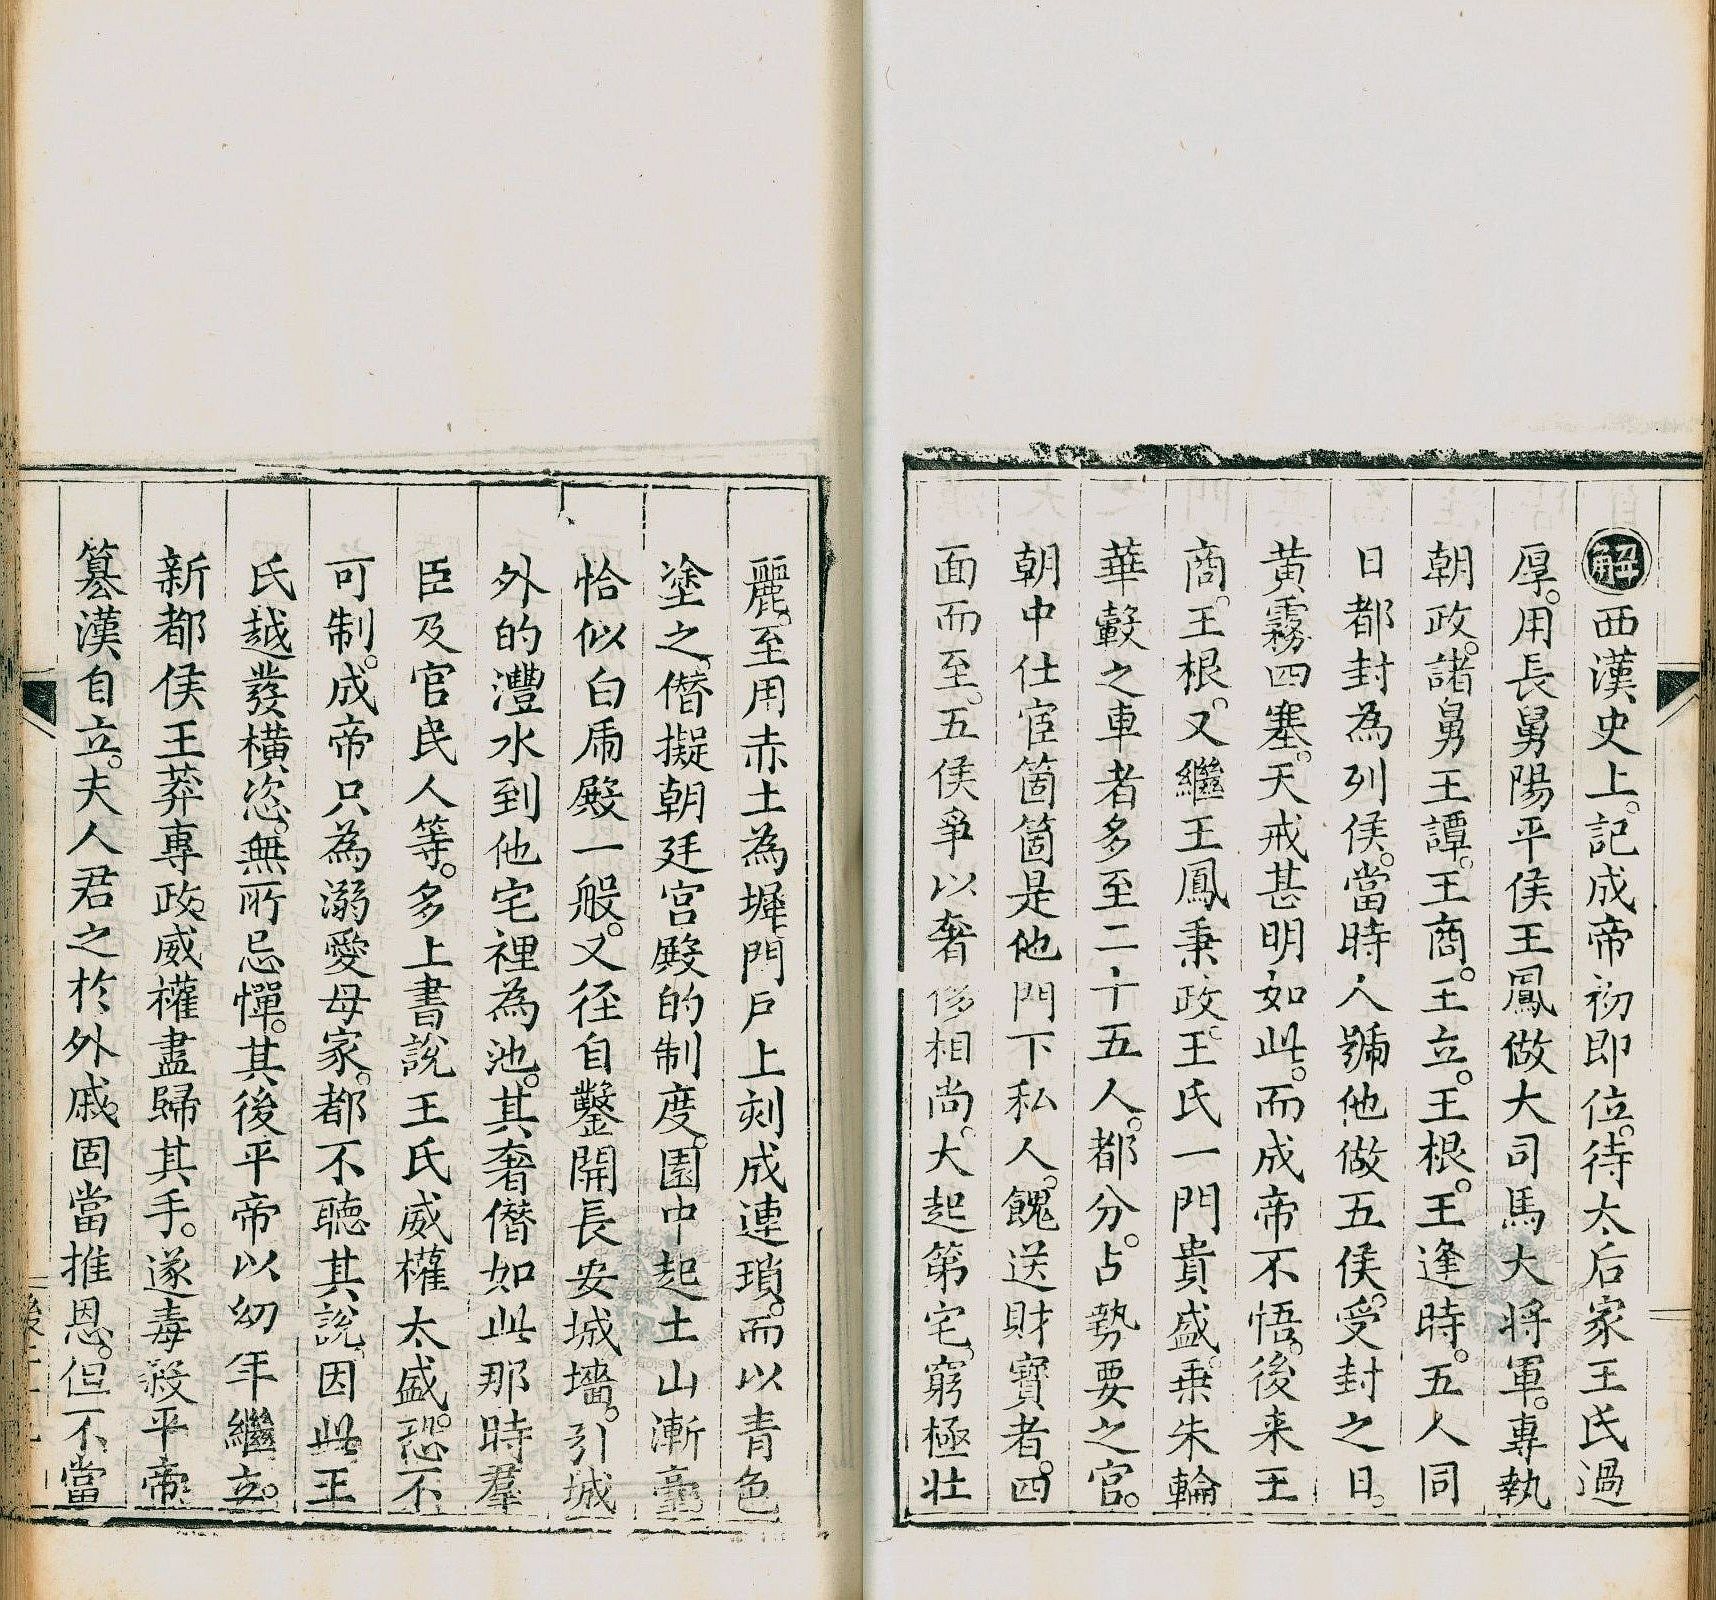 解西漢史上。記成帝初即位。待太后家王氏過
厚。用長舅陽平侯王鳳做大司馬大將軍。專執
朝政。諸舅王譚。王商。王立。王根。王逢時。五人同
日都封為列侯。當時人號他做五侯。受封之日。
黃霧四塞。天戒甚明如此。而成帝不悟。後来王
商。王根。又繼王鳳秉政。王氏一門貴盛。乗朱輪
華轂之車者多至二十五人。都分。占勢要之官。
朝中仕宦箇箇是他門下私人。餽送財寶者。四
面而至。五侯爭以奢侈相尚。大起第宅。窮極壯
麗。至用赤土為墀。門戶上刻成連瑣。而以青色
塗之。僭擬朝廷宮殿的制度。園中起土山漸臺。
恰似白虎殿一般。又徑自鑿開長安城墻。引城
外的灃水到他宅裡為池。其奢僭如此。那時羣
臣及官民人等。多上書說王氏威權太盛。恐不
可制。成帝只為溺愛母家。都不聽其說。因此王
氏越發橫恣。無所忌憚。其後平帝以幼年繼立。
新都侯王莽專政。威權盡歸其手。遂毒殺平帝。
篡漢自立。夫人君之於外戚。固當推恩。但不當